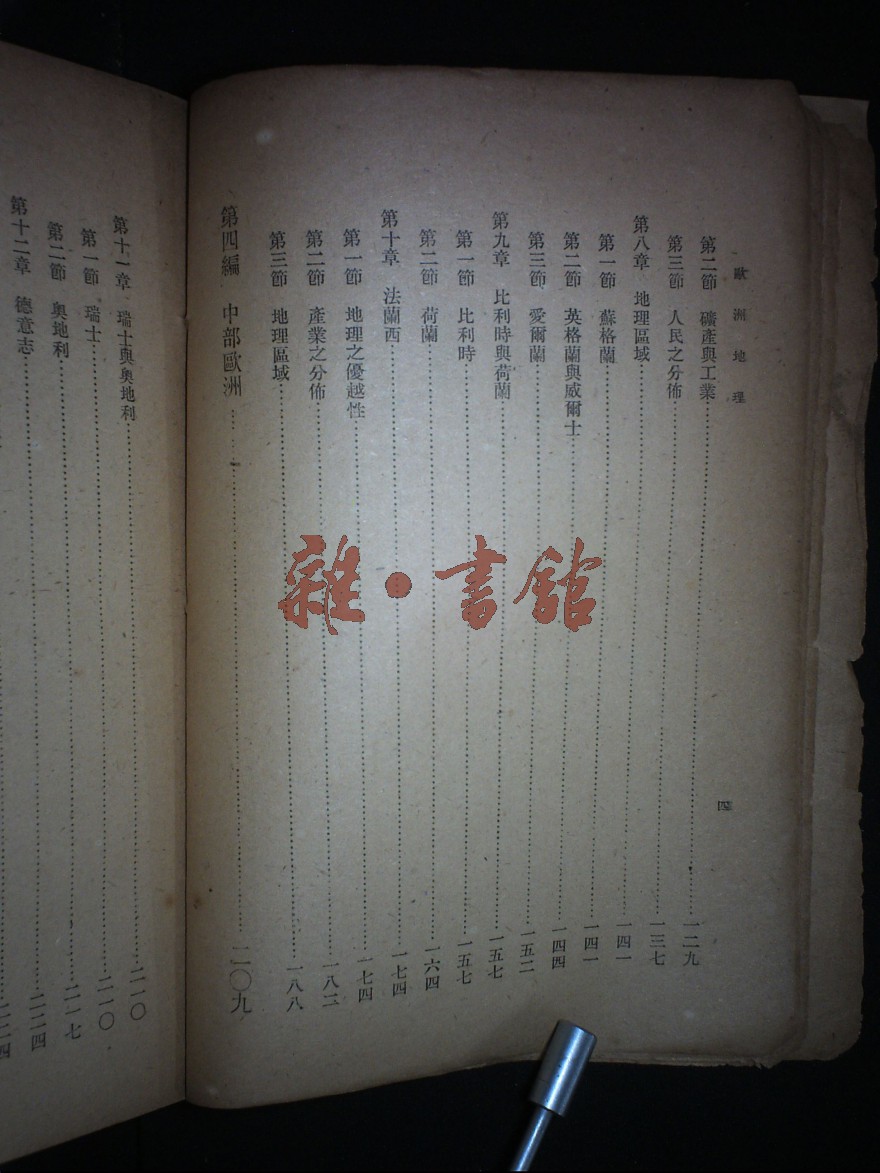 歐洲地理
四
第二節 礦產與工業……一二九
第三節 人民之分佈……一三七
第八章 地理區域……一四一
第一節 蘇格蘭……一四一
第二節 英格蘭與威爾士……一四四
第三節 愛爾蘭……一五二
第九章 比利時與荷蘭……一五七
第一節 比利時……一五七
第二節 荷蘭……一六四
第十章 法蘭西……一七四
第一節 地理之優越性……一七四
第二節 產業之分佈……一八二
第三節 地理區域……一八八
第四編 中部歐洲……二〇九
第十一章 瑞士與奧地利……二一〇
第一節 瑞士……二一〇
第二節 奧地利……二一七
第十二章 德意志……二二四
二二四
雜·書館